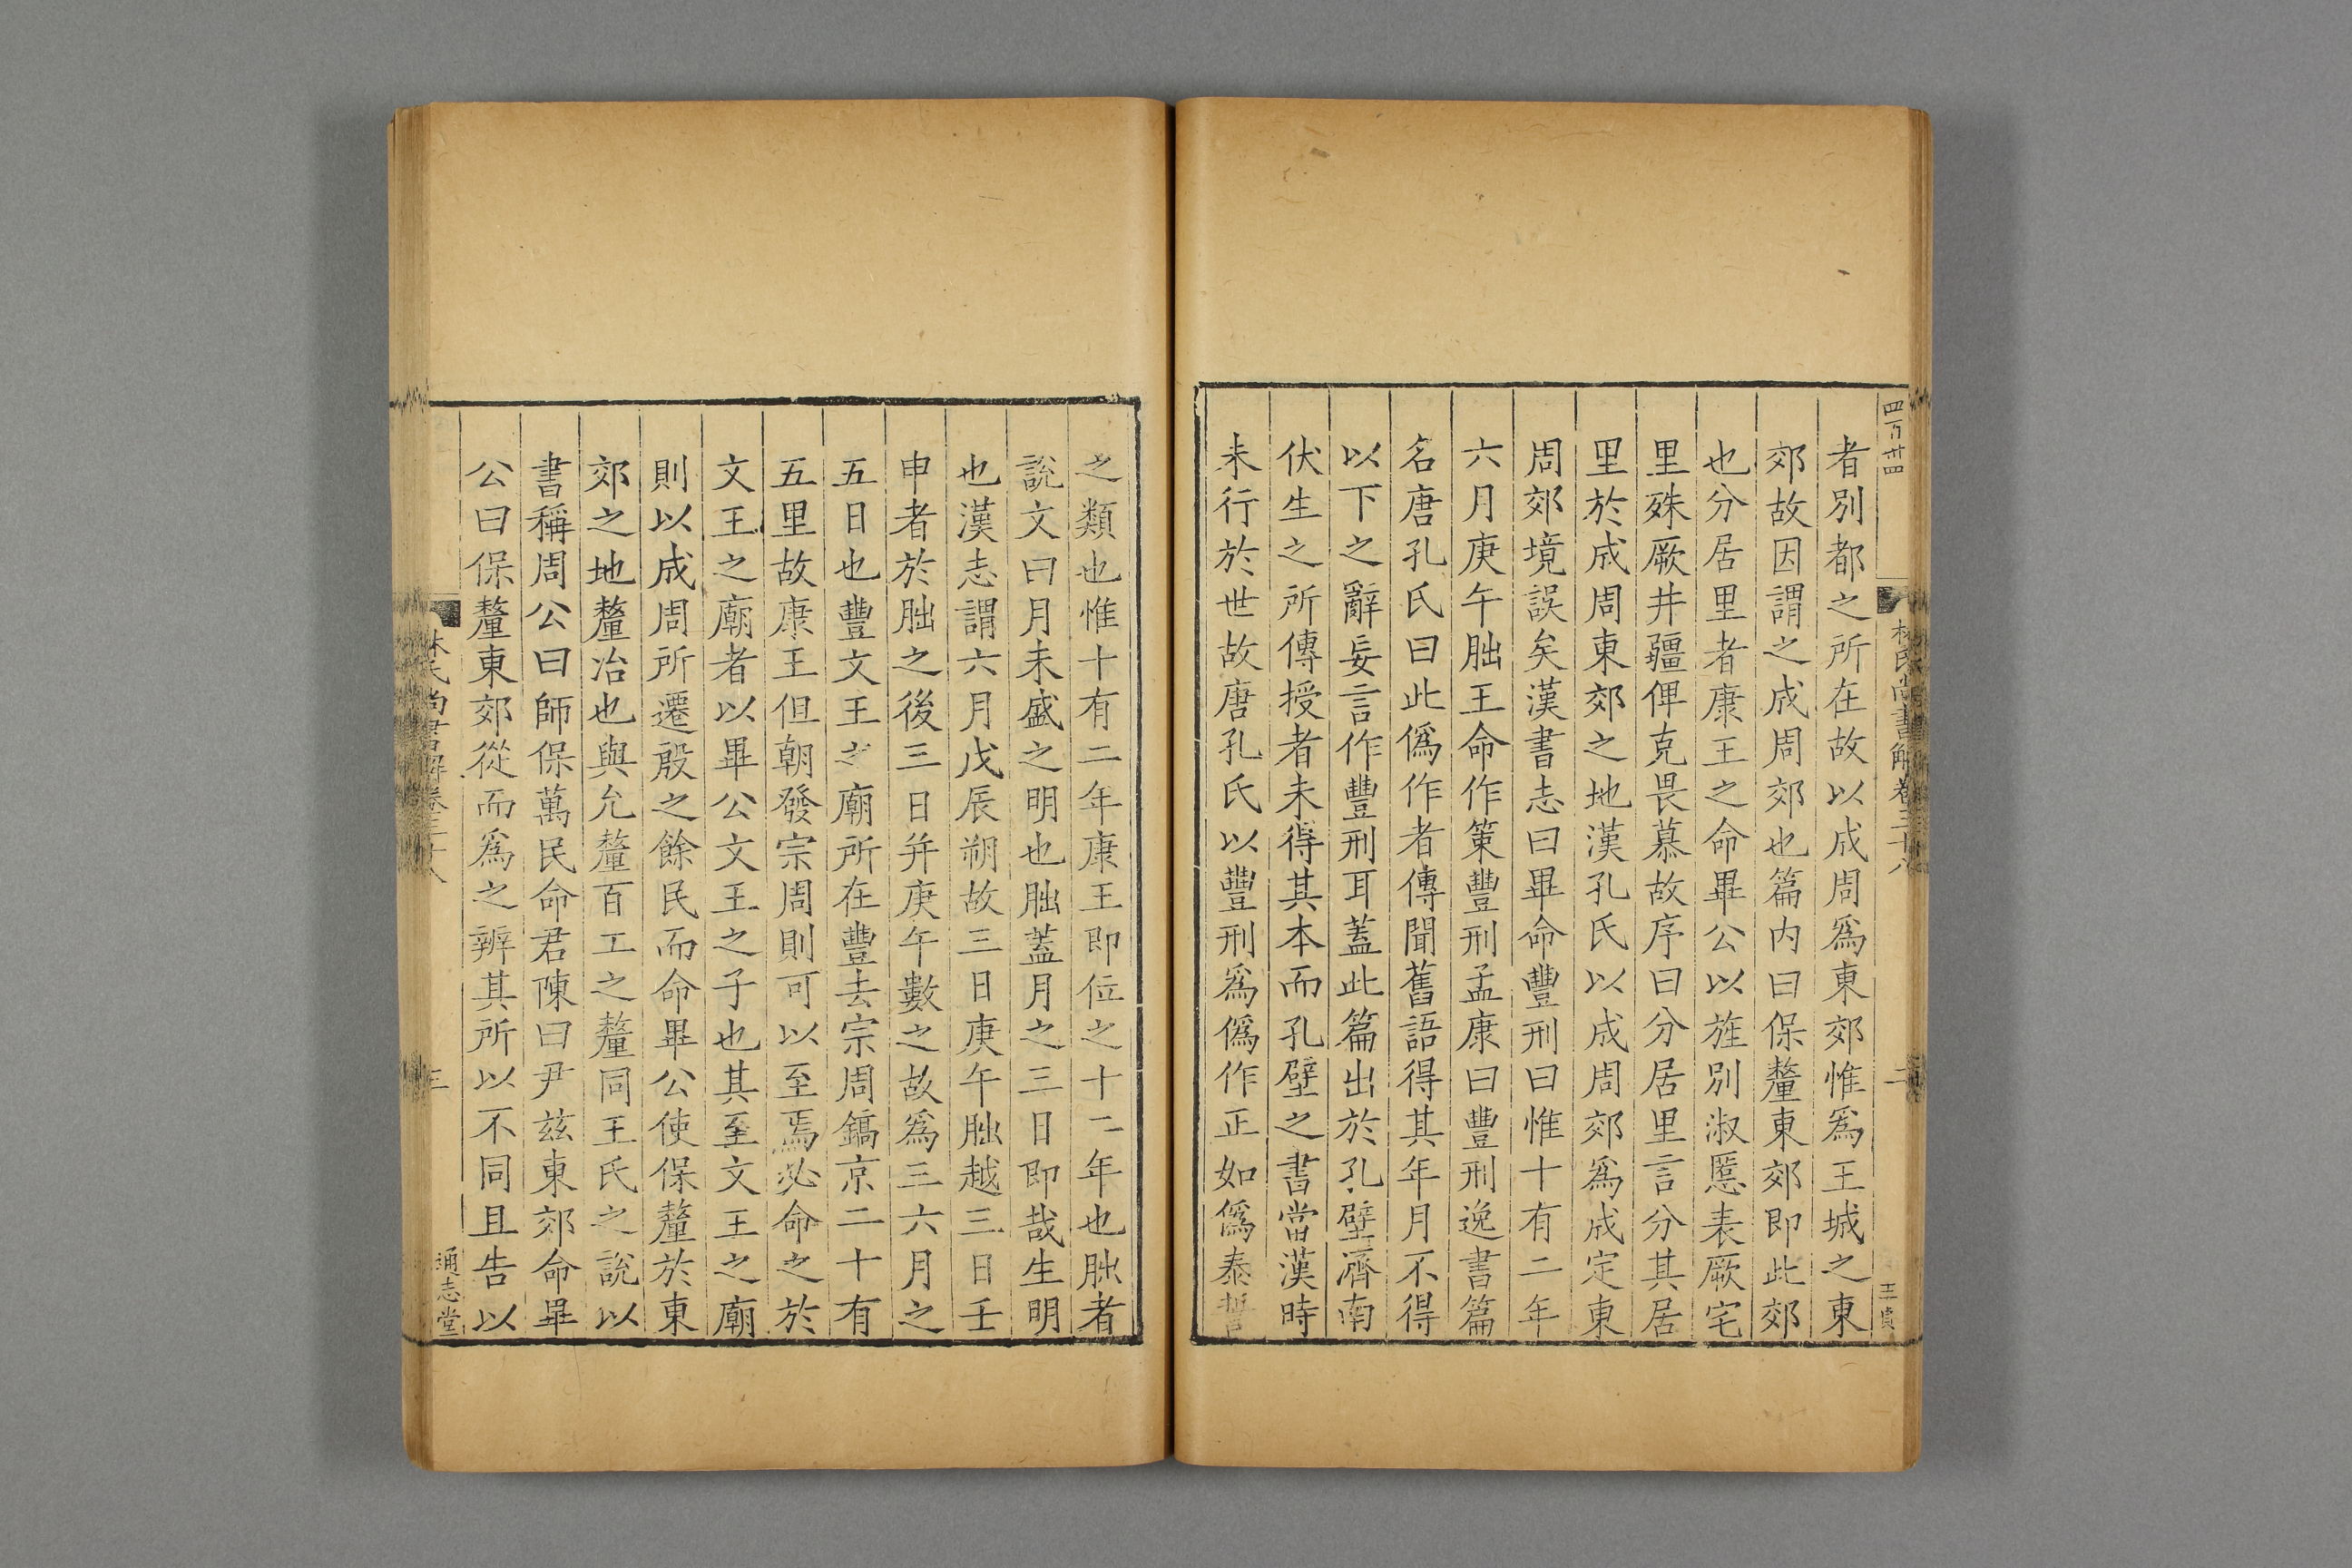 四百廿四
林氏尚書解卷三十八
二
者別都之所在故以成周爲東郊惟爲王城之東
郊故因謂之成周郊也篇内曰保釐東郊即此郊
也分居里者康王之命畢公以旌別淑慝表厥宅
里殊厥井疆俾克畏慕故序曰分居里言分其居
里於成周東郊之地漢孔氏以成周郊爲成定東
周郊境誤矣漢書志曰畢命豐刑曰惟十有二年
六月庚午朏王命作策豐刑孟康曰豐刑逸書篇
名唐孔氏曰此僞作者傳聞舊語得其年月不得
以下之辭妄言作豐刑耳蓋此篇出於孔壁濟南
伏生之所傳授者未得其本而孔壁之書當漢時
未行於世故唐孔氏以豐刑爲僞作正如僞泰誓
之類也惟十有二年康王即位之十二年也朏者
說文曰月未盛之明也朏蓋月之三日即哉生明
也漢志謂六月戊辰朔故三日庚午朏越三日壬
申者於朏之後三日并庚午數之故爲三六月之
五日也豐文王之廟所在豐去宗周鎬京二十有
五里故康王但朝發宗周則可以至焉必命之於
文王之廟者以畢公文王之子也其至文王之廟
則以成周所遷殷之餘民而命畢公使保釐於東
郊之地釐治也與允釐百工之釐同王氏之說以
書稱周公曰師保萬民命君陳曰尹茲東郊命畢
公曰保釐東郊從而爲之辨其所以不同且告以
林氏尚書解卷三十八
三
通志堂